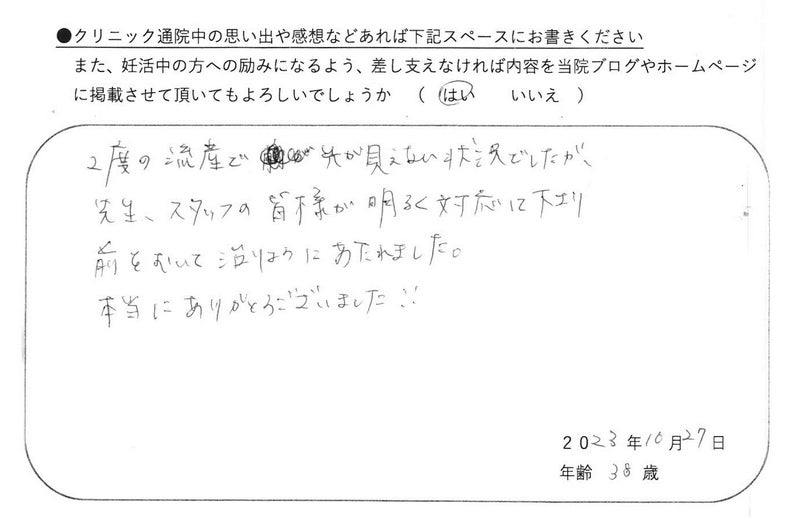 ●クリニック通院中の思い出や感想などあれば下記スペースにお書きください
また、妊活中の方への励みになるよう、差し支えなければ内容を当院ブログやホームページ
に掲載させて頂いてもよろしいでしょうか （ はい いいえ ）
2度の流産で 先が見えない状況でしたが、
先生、スタッフの皆様が明るく対応して下さり
前をむいて治りょうにあたれました。
本当にありがとうございました!!
2023年10月27日
年齢 38 歳